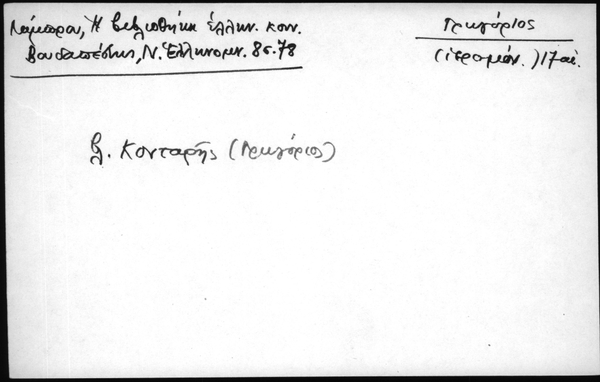 Λάμπρου, Ἡ βιβλιοθήκη ἑλλην. κοιν.
Βουδαπέστης, Ν. Ἑλληνομν. 8σ. 78
Γρηγόριος
(ἱερομόν.) 17 αἰ.
βλ. Κονταρῆς (Γρηγόριος)